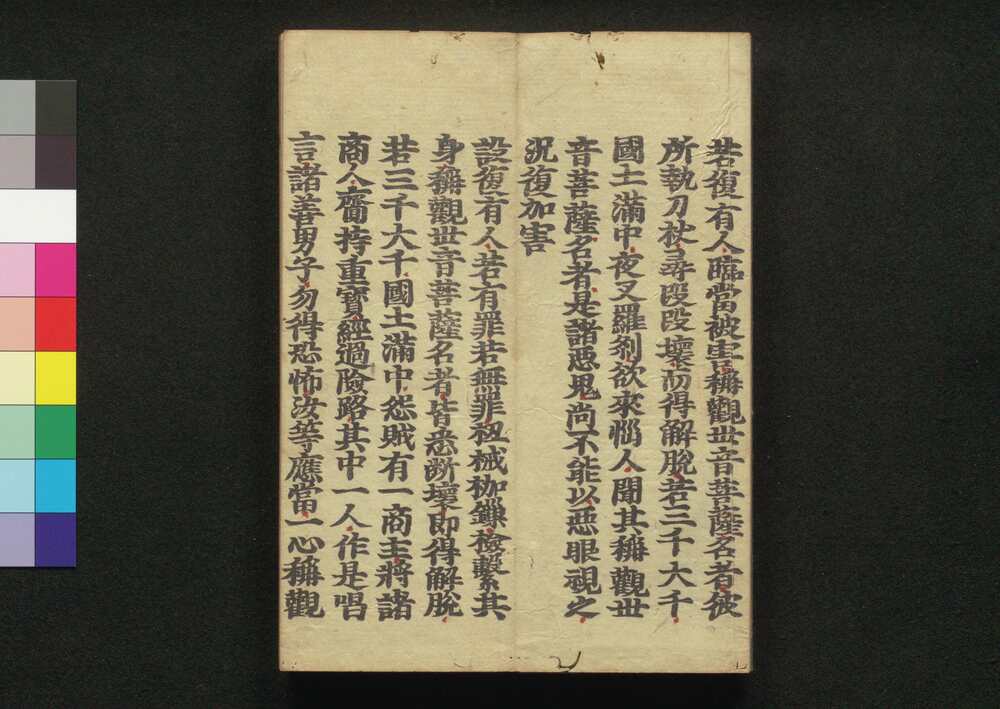 若復有人臨當被害稱觀世音菩薩名者彼
所執刀杖尋段段壞而得解脫若三千大千
國土滿中夜叉羅刹欲來惱人聞其稱觀世
音菩薩名者是諸惡鬼尚不能以惡眼視之
況復加害
設復有人若有罪若無罪杻械枷鎖檢繫其
身稱觀世音菩薩名者皆悉断壞即得解脫
若三千大千國土滿中怨賊有一商主將諸
商人齎持重寶經過險路其中一人作是唱
言諸善男子勿得恐怖汝等應當一心稱觀